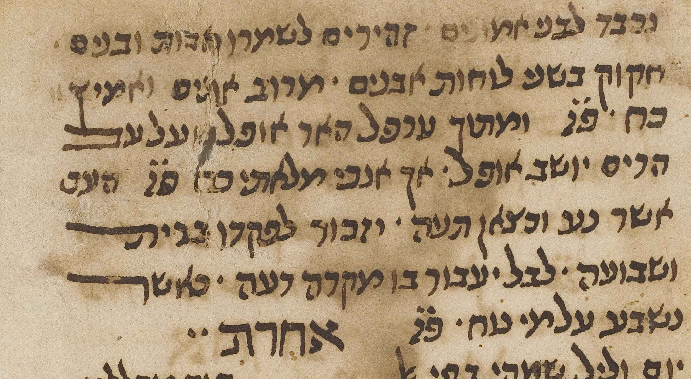 נכבד לבני אמונים · זהירים לשמרו אבות ובנים ·
חקוק בשני לוחות אבנים · מרוב אונים ואמיץ
כח · פז̈ ומתוך ערפל האר אופל · על עם
הרים יושב אופל · אך אנכי מלאתי כח פז̈ העם
אשר נע וכצאן תעה · יזכור לפקדו בברית
ושבועה · לבל יעבור בו מקרה רעה · כאשר
נשבע על מי נוח · פז̈ אחרת ··
יום וליל שמרי